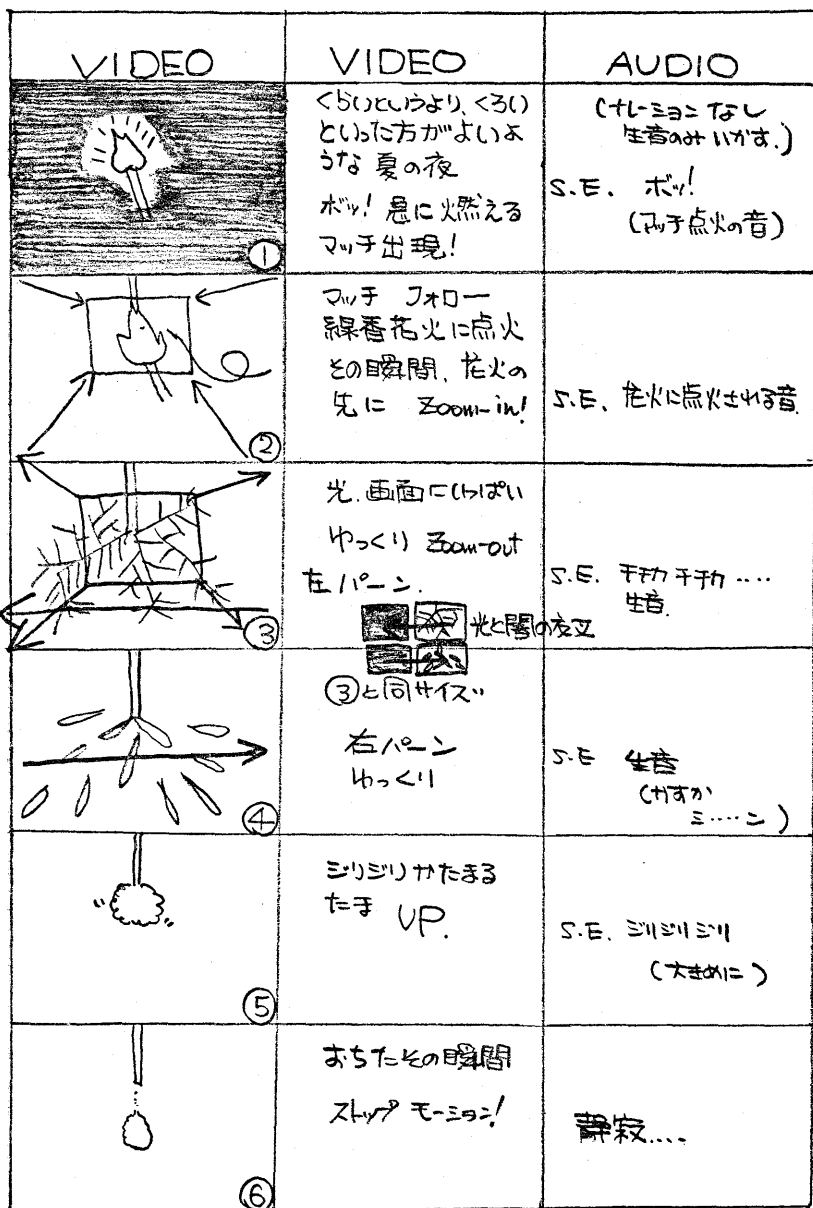 VIDEO
VIDEO
AUDIO
①
くらいというより、くろい
といった方がよいよ
うな 夏の夜
ボッ! 急に燃える
マッチ出現!
(ナレーション なし
生音のみ いかす.)
S.E. ボッ!
(マッチ点火の音)
②
マッチ フォロー
線香花火に点火
その瞬間、花火の
先に Zoom-in!
S.E. 花火に点火される音.
③
光.画面にいっぱい
ゆっくり Zoom-out
左 パーン.
光と闇の交叉
S.E. チチカ チチカ ‥‥
生音.
④
③と同サイズ
右パーン
ゆっくり
S.E 生音
(かすか
ミ‥‥ン)
⑤
ジリジリ かたまる
たま UP.
S.E. ジリジリジリ
(大きめに)
⑥
おちたその瞬間
ストップ モーション!
静寂‥‥